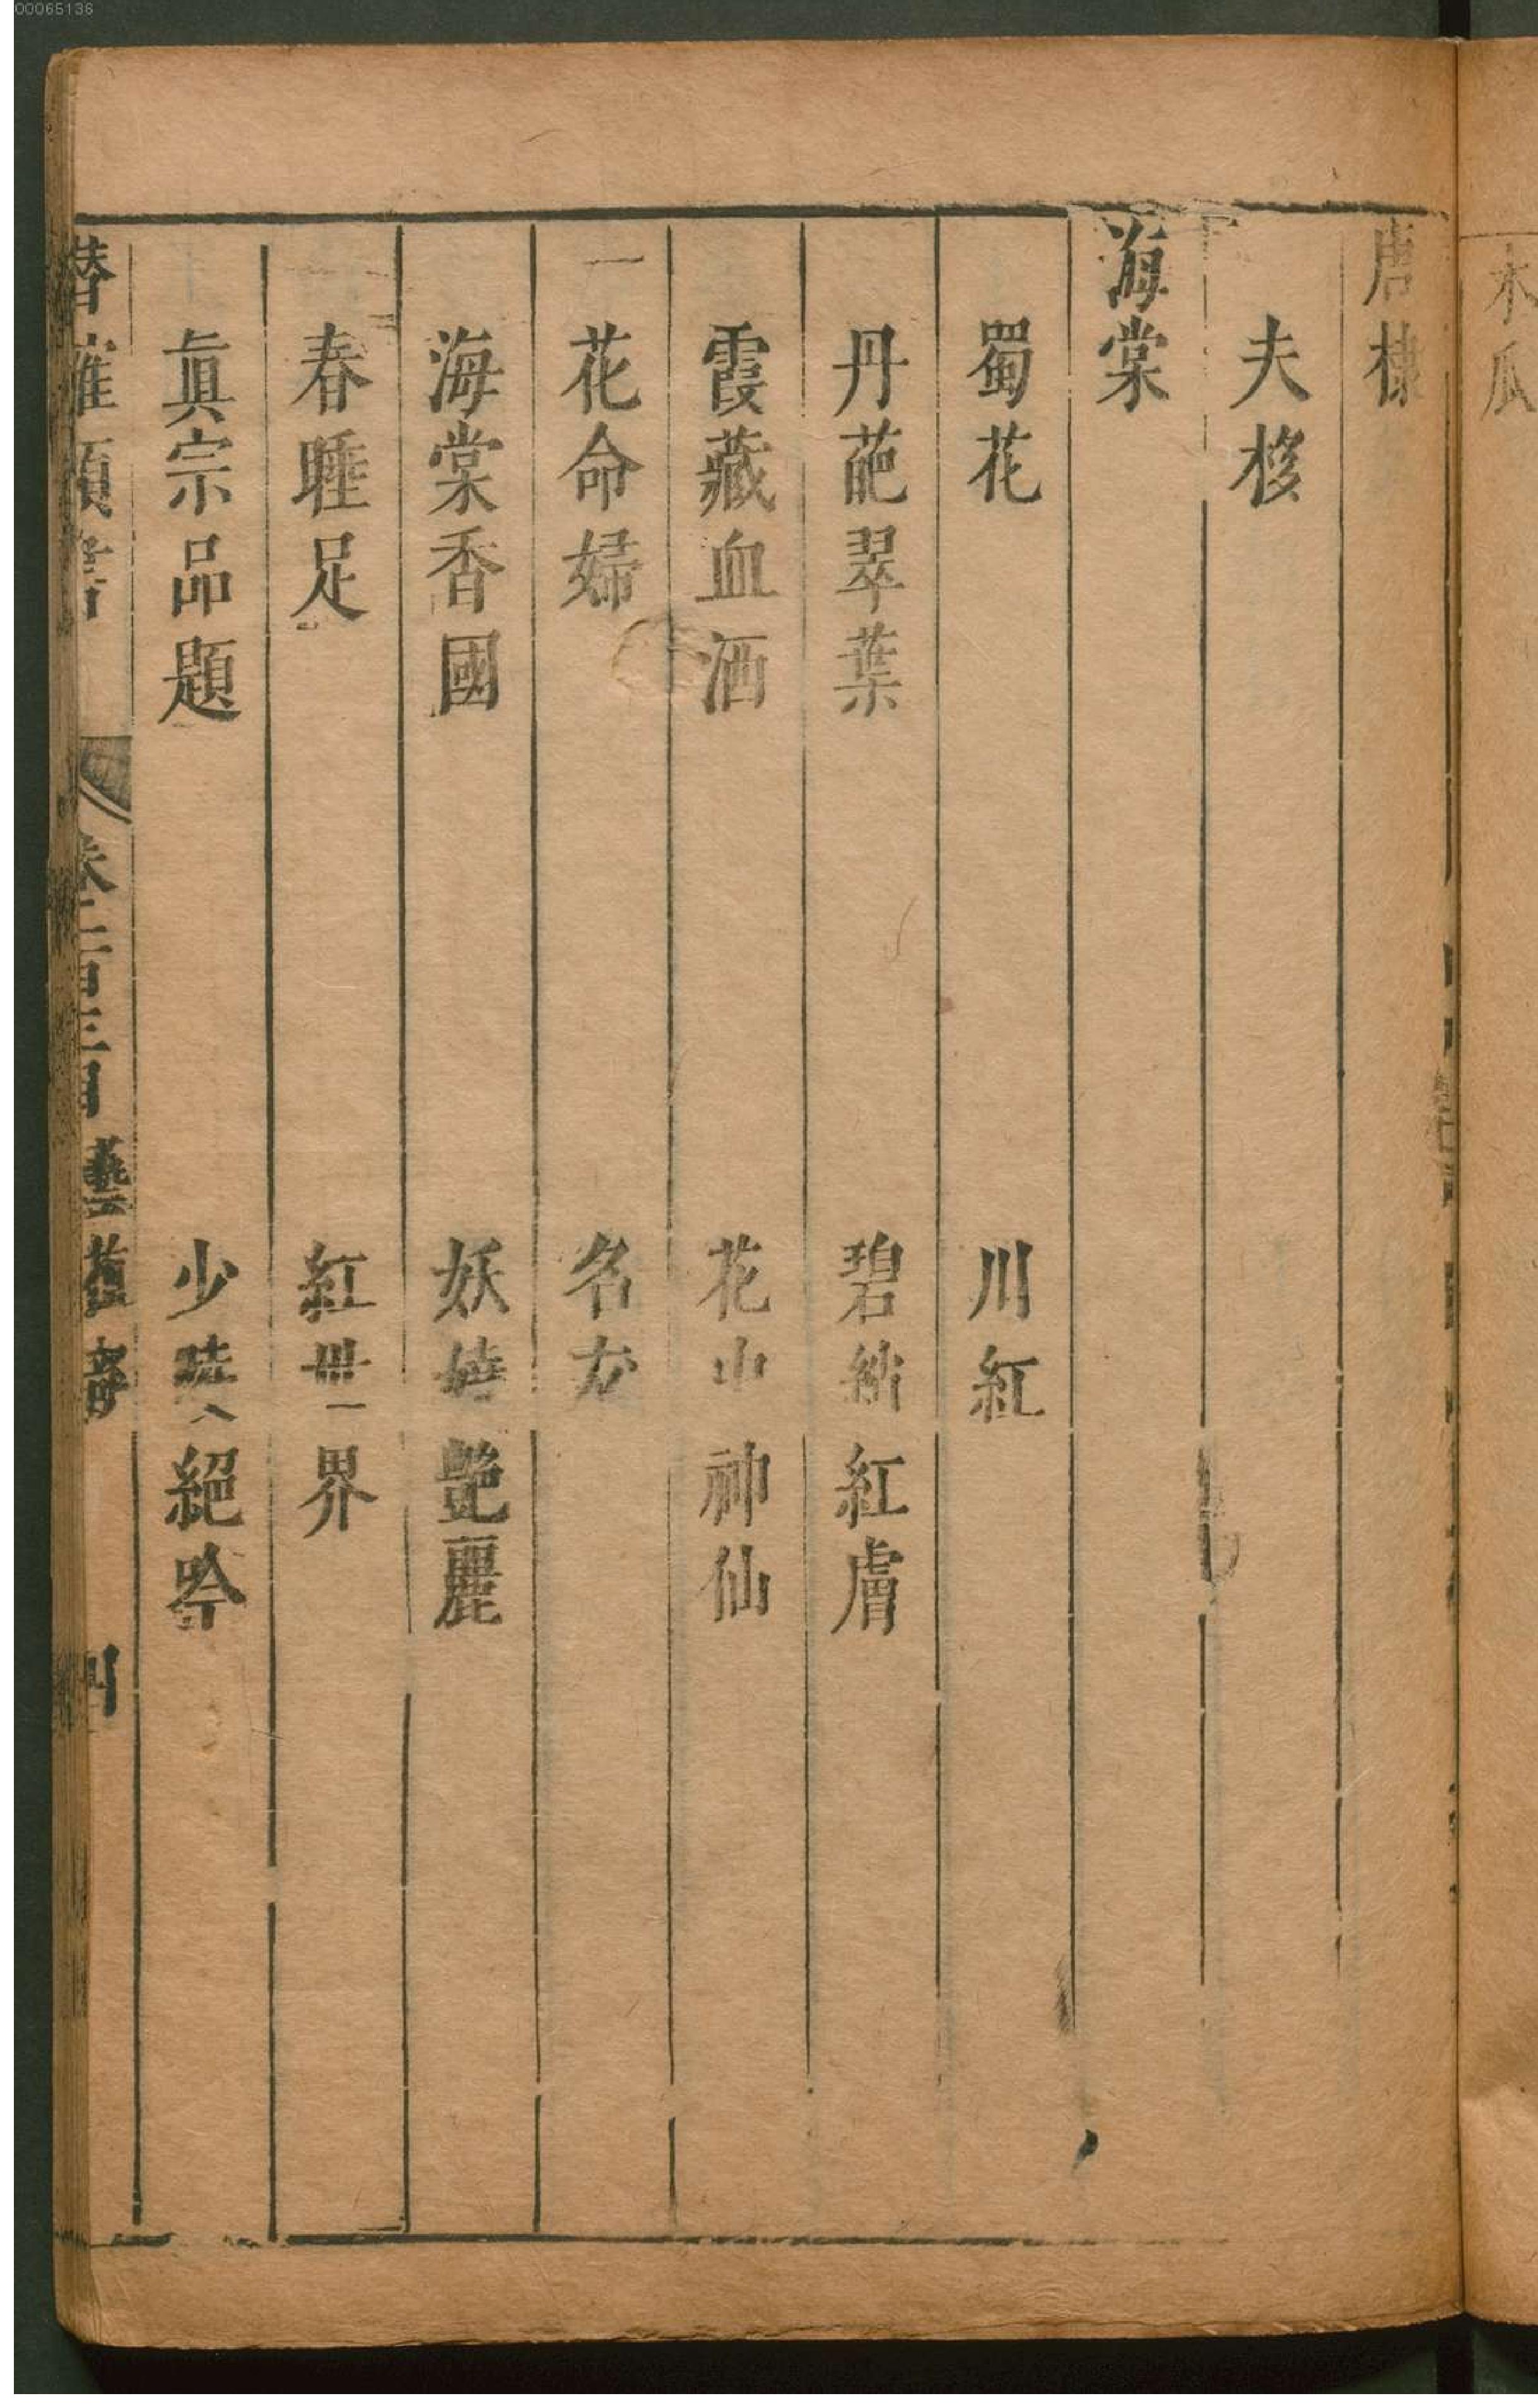 00065136
木瓜
唐棣
夫栘
海棠
蜀花
川紅
丹葩翠葉
碧 紅膚
霞藏血洒
花中神仙
花命婦
名友
海棠香國
妖嬈艷麗
春睡足
紅世界
眞宗品題
少陵絕吟
潛確類書 卷一百三目 藝植部 四